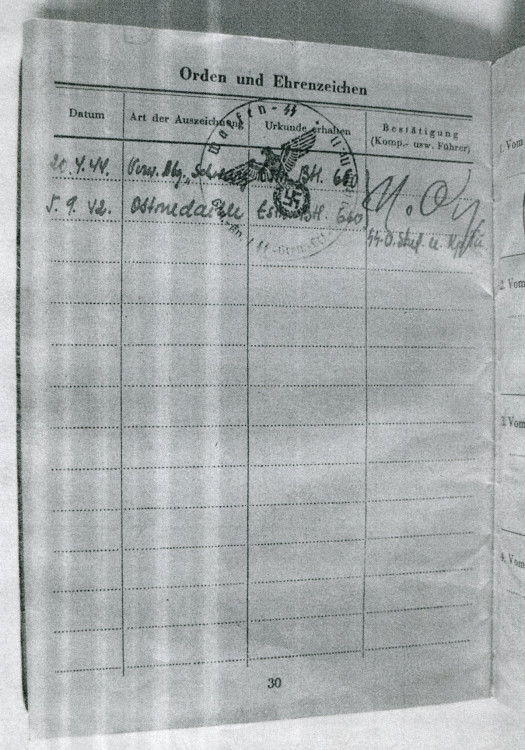 Orden und Ehrenzeichen
Datum Art der Auszeichnung Urkunde erhalten Bestätigung
(Komp.- usw. Führer)
Waffen-SS
20.4.44. Verw. Abz. Schwarz Estn. Btl. 660
5.9.42. Ostmedaille Estn. Btl. 660
SS-O.Stuf. u.
30
1. Vom
2. Vom
3. Vom
4. Vom